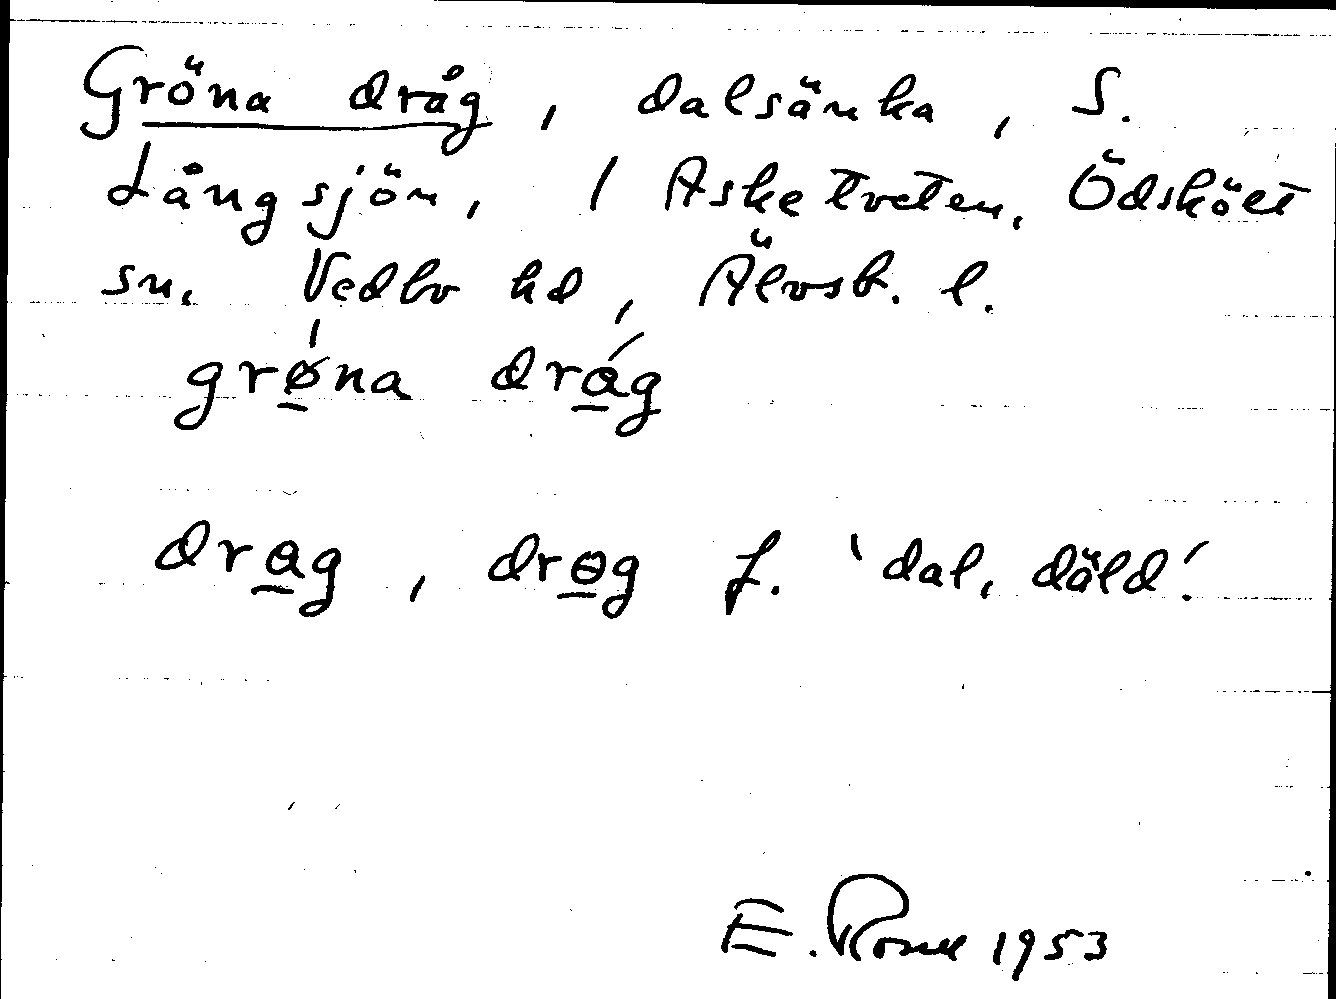 Gröna dråg, dalsänka, S.
Långsjön, 1 Asketveten, Ödskölt
sn. Vedbo hd, Älvsb. l.
grǿ̲na drá̲g
dra̲g, drɵ̲g f. 'dal, däld'.
E. 1953